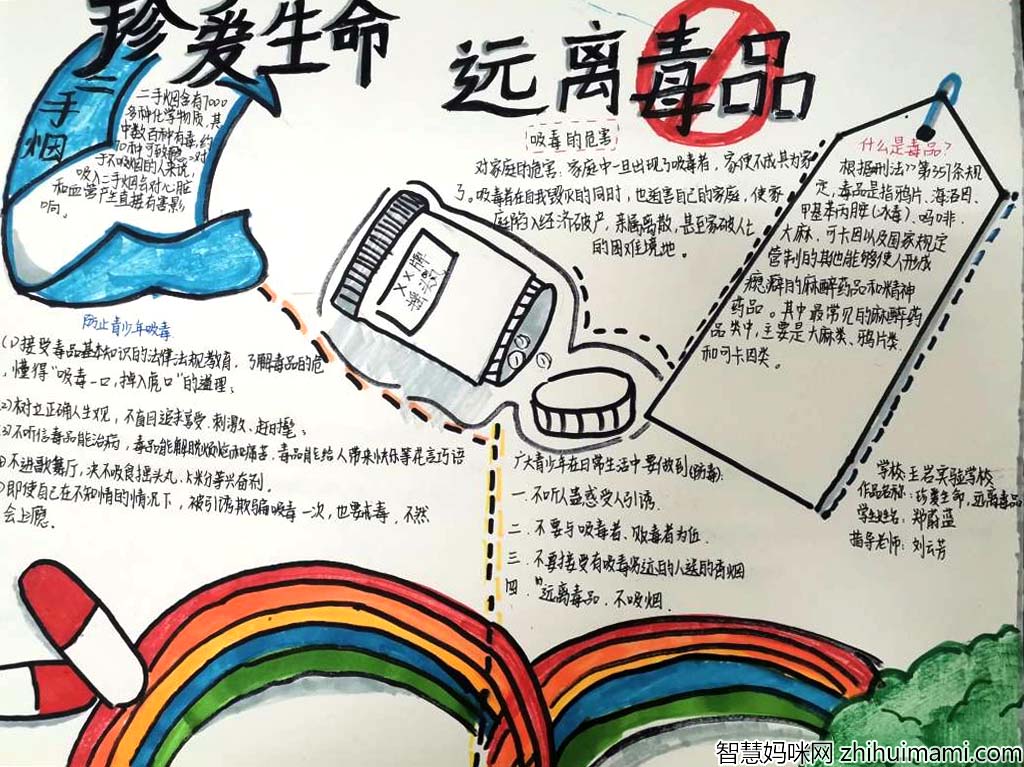 珍爱生命
远离毒品
二手烟
二手烟含有7000
多种化学物质,其
中数百种有毒,约
70种可致癌。对
于不吸烟的人来说,
吸入二手烟会对心脏
和血管产生直接有害影
响。
吸毒的危害
对家庭的危害:家庭中一旦出现了吸毒者,家便不成其为家
了。吸毒者在自我毁灭的同时,也迫害自己的家庭,使家
庭陷入经济破产,亲属离散,甚至家破人亡
的困难境地。
什么是毒品?
根据刑法》第357条规
定,毒品是指鸦片、海洛因、
甲基苯丙胺(冰毒)、吗啡、
大麻、可卡因以及国家规定
管制的其他能够使人形成
瘾癖的麻醉药品和精神
药品。其中最常见的麻醉药
品类中,主要是大麻类、鸦片类
和可卡因类。
XX牌
防止青少年吸毒
(1)接受毒品基本知识的法律法规教育,了解毒品的危
,懂得“吸毒一口,掉入虎口”的道理。
(2)树立正确人生观,不盲目追求享受、刺激、赶时髦。
(3)不听信毒品能治病,毒品能解脱烦恼和痛苦,毒品能给人带来快乐等花言巧语
④不进歌舞厅,决不吸食摇头丸、K粉等兴奋剂。
⑤即使自己在不知情的情况下,被引诱欺骗吸毒一次,也要戒毒,不然
会上瘾。
广大青少年在日常生活中要做到(防毒):
一.不听人蛊惑受人引诱.
二.不要与吸毒者、贩毒者为伍.
三.不要接受有吸毒劣迹的人送的香烟
四.“远离毒品,不吸烟.
学校:王岩实验学校
作品名称:珍爱生命,远离毒品
学生姓名:郑蔚蓝
指导老师:刘云芳
智慧妈咪网 zhihuimami.com